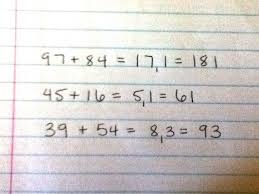 97 + 84 = 17,1 = 181
45 + 16 = 5,1 = 61
39 + 54 = 8,3 = 93